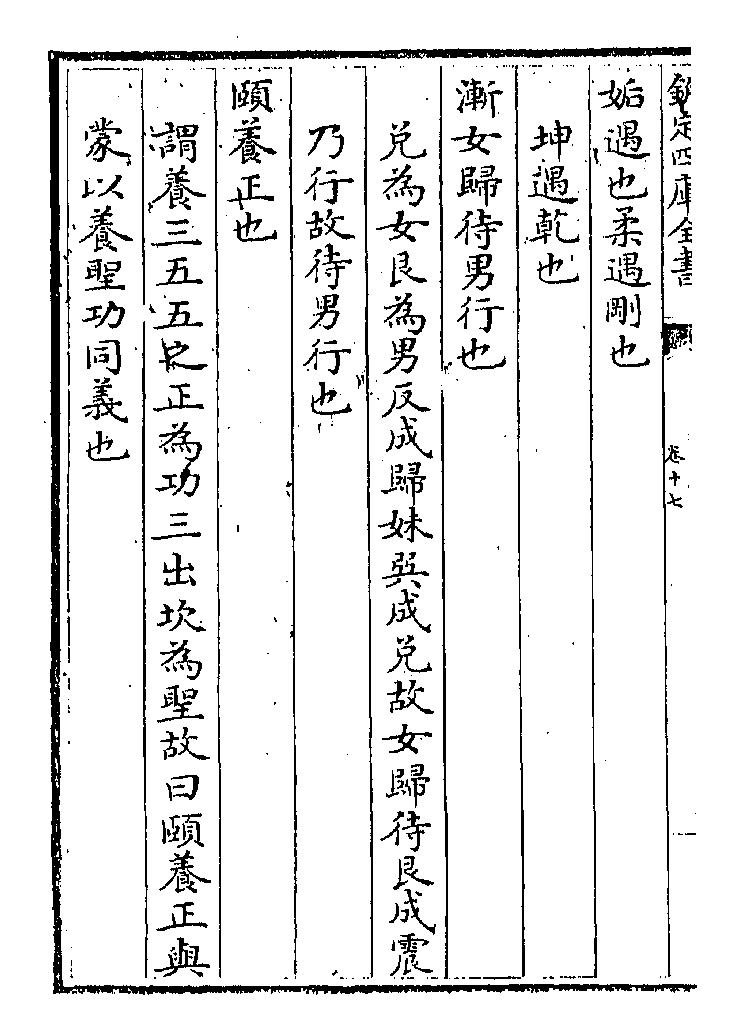 欽定四庫全書
卷十七
姤遇也柔遇剛也
坤遇乾也
漸女歸待男行也
兌為女艮為男反成歸妹巽成兌故女歸待艮成震
乃行故待男行也
頤養正也
謂養三五五之正為功三出坎為聖故曰頤養正與
蒙以養聖功同義也